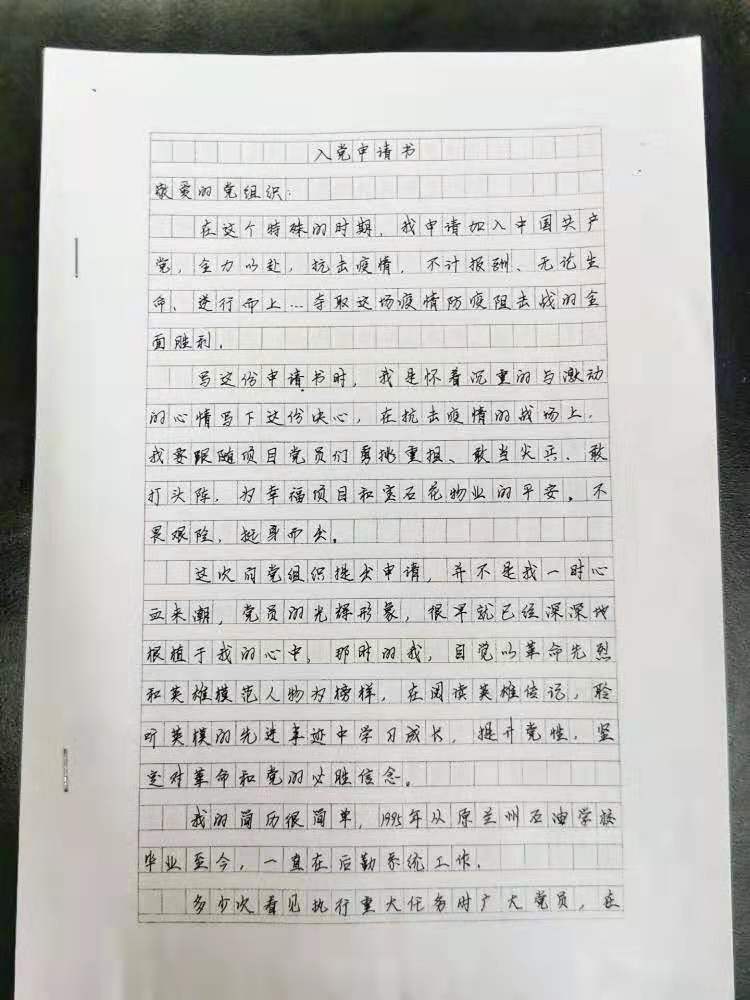 入党申请书
敬爱的党组织：
在这个特殊的时期，我申请加入中国共产
党，全力以赴，抗击疫情，不计报酬、无论生
命、逆行而上…夺取这场疫情防疫阻击战的全
面胜利。
写这份申请书时，我是怀着沉重的与激动
的心情写下这份决心，在抗击疫情的战场上，
我要跟随项目党员们勇挑重担、敢当尖兵、敢
打头阵，为幸福项目和宝石花物业的平安，不
畏艰险，挺身而出。
这次向党组织提出申请，并不是我一时心
血来潮，党员的光辉形象，很早就已经深深地
根植于我的心中，那时的我，自觉以革命先烈
和英雄模范人物为榜样，在阅读英雄传记，聆
听英模的先进事迹中学习成长，提升党性，坚
定对革命和党的必胜信念。
我的简历很简单，1995年从原兰州石油学校
毕业至今，一直在后勤系统工作。
多少次看见执行重大任务时广大党员，在